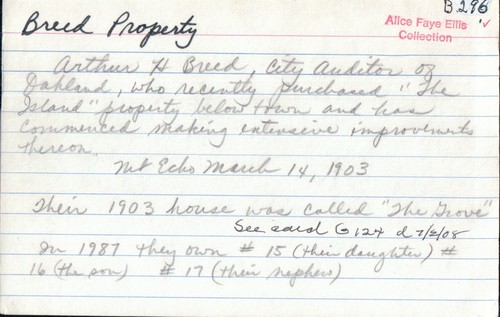 B296
Breed Property
Alice Faye Ellis
Collection
Arthur H Breed, City Auditor of
Oakland, who recently purchased "The
Island" property below town and has
commenced making extensive improvements
thereon.
Mt Echo March 14, 1903
Their 1903 house was called "The Grove"
See card G124 d 7/2/08
In 1987 they own # 15 (their daughter) #
16 (the son) # 17 (their nephew)